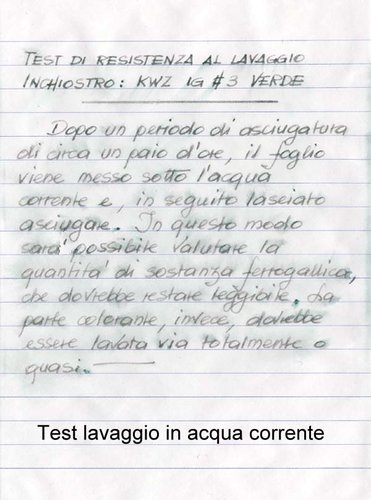 TEST DI RESISTENZA AL LAVAGGIO
INCHIOSTRO: KWZ IG #3 VERDE
Dopo un periodo di asciugatura
di circa un paio d'ore, il foglio
viene messo sotto l'acqua
corrente e, in seguito lasciato
asciugare. In questo modo
sarà possibile valutare la
quantità di sostanza ferrogallica,
che dovrebbe restare leggibile. La
parte colorante, invece, dovrebbe
essere lavata via totalmente o
quasi.
Test lavaggio in acqua corrente